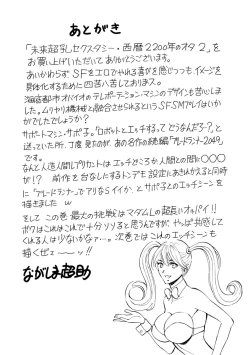 あとがき
「未来超乳セクスタシー・西暦2200年のオタ2」を
お買い上げいただいてありがとうございます。
あいかわらず、SFをエロでやれる喜びを感じつつ、イメージを
具体化するために四苦八苦しております。
海底都市オパイオのテレポーテーション・マシンのデザインも苦心しま
した。ムリヤリ機械と融合させられるというSFSMプレイはいか
がでしたでしょうか?
サポートマシン・サポ子。「ロボットとエッチするってどうなんだろ〜?」と
迷っていた所、丁度見たのが、あの名作の続編「ブレードランナー2049」。
なんと人造人間レプリカントはエッチどころか人間との間に〇〇〇
が!? 前作を台なしにするトンデモ設定にあきれかえると同時
に「ブレードランナーでアリならイイか」とサポ子とのエッチシーンを
描きました w
そして この巻 最大の挑戦はマダムLの超長いオッパイ!!
ボクはこれはこれで十分ソソると思うんですが、やっぱ共感して
くれる人は少ないかな〜…。次巻ではこれのエッチシーンも
描くぜェ〜〜!!
ながしま超助